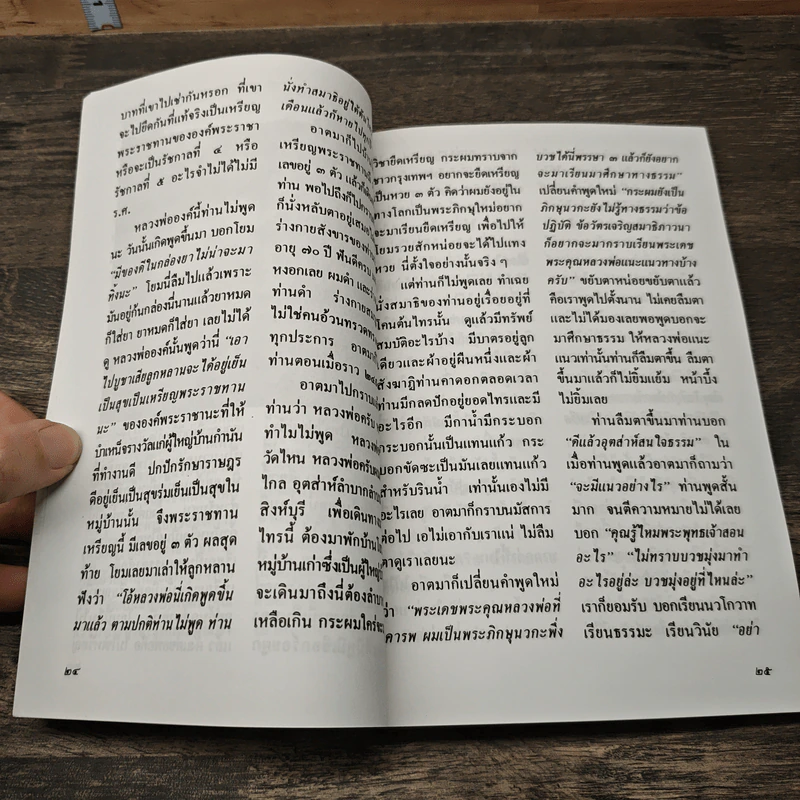 บาทที่เขาไปเช่ากันหรอก ที่เขา
จะไปยึดกันที่แท้จริงเป็นเหรียญ
พระราชทานขององค์พระราชา
หรือจะเป็นรัชกาลที่ ๔ หรือ
รัชกาลที่ ๕ อะไรจำไม่ได้ไม่มี
ร.ศ.
หลวงพ่อองค์นี้ท่านไม่พูด
นะ วันนั้นเกิดพูดขึ้นมา บอกโยม
“มีของดีในกล่องยา ไม่น่าจะมา
ทิ้งนะ” โยมนี่ลืมไปแล้วเพราะ
มันอยู่ก้นกล่องนี่นานแล้วยาหมด
ก็ใส่ยา ยาหมดก็ใส่ยา เลยไม่ได้
ดู หลวงพ่อองค์นั้นพูดว่านี่ “เอา
ไปบูชาเสียลูกหลานจะได้อยู่เย็น
เป็นสุขเป็นเหรียญพระราชทาน
นะ” ขององค์พระราชานะที่ให้
บำเหน็จรางวัลแก่ผู้ใหญ่บ้านกำนัน
ที่ทำงานดี ปกปักรักษาราษฎร
ดีอยู่เย็นเป็นสุขร่มเย็นเป็นสุขใน
หมู่บ้านนั้น จึงพระราชทาน
เหรียญนี้ มีเลขอยู่ ๓ ตัว ผลสุด
ท้าย โยมเลยมาเล่าให้ลูกหลาน
ฟังว่า “โอ้หลวงพ่อนี่เกิดพูดขึ้น
มาแล้ว ตามปกติท่านไม่พูด ท่าน
นั่งทำสมาธิอยู่ใต้ต้น
เดือนแล้วก็หายไป
อาตมาก็ไป
เหรียญพระราชทาน
เลขอยู่ ๓ ตัว แล้ว
ท่าน พอไปถึงก็ไป
ก็นั่งหลับตาอยู่เสมอ
ร่างกายสังขารของ
อายุ ๗๐ ปี ฟันดีครบ
หงอกเลย ผมดำ และ
ท่านดำ ร่างกาย
ไม่ใช่คนอ้วนทรวดทรง
ทุกประการ อาตมา
ท่านตอนเมื่อราว
อาตมาไปกราบ
ท่านว่า หลวงพ่อครับ
ทำไมไม่พูด หลวงพ่อ
วัดไหน หลวงพ่อครับ
ไกล อุตส่าห์ลำบาก
สิงห์บุรี เพื่อเดินทาง
ไทรนี้ ต้องมาพักบ้าน
หมู่บ้านเก่าซึ่งเป็นผู้ใหญ่
จะเดินมาถึงนี่ต้องลำบาก
เหลือเกิน กระผมใคร่จะ
๒๔
วิชายึดเหรียญ กระผมทราบจาก
ชาวกรุงเทพฯ อยากจะยึดเหรียญ
เป็นหวย ๓ ตัว คิดว่าผมยังอยู่ใน
ทางโลกเป็นพระภิกษุใหม่อยาก
จะมาเรียนยึดเหรียญ เพื่อไปให้
โยมรวยสักหน่อยจะได้ไปแทง
หวย นี่ตั้งใจอย่างนั้นจริง ๆ
แต่ท่านก็ไม่พูดเลย ทำเฉย
นั่งสมาธิของท่านอยู่เรื่อยอยู่ที่
โคนต้นไทรนั้น ดูแล้วมีทรัพย์
สมบัติอะไรบ้าง มีบาตรอยู่ลูก
เดียวและผ้าอยู่ผืนหนึ่งและผ้า
สังฆาฏิท่านคาดอกตลอดเวลา
ท่านมีกลดปักอยู่ยอดไทรและมี
อะไรอีก มีกาน้ำมีกระบอก
กระบอกนั้นเป็นแทนแก้ว กระ
บอกขัดซะเป็นมันเลยแทนแก้ว
สำหรับรินน้ำ เท่านั้นเองไม่มี
อะไรเลย อาตมาก็กราบนมัสการ
ต่อไป เอไม่เอากับเราแน่ ไม่ลืม
ตาดูเราเลยนะ
อาตมาก็เปลี่ยนคำพูดใหม่
ว่า “พระเดชพระคุณหลวงพ่อที่
เคารพ ผมเป็นพระภิกษุนวกะพึ่ง
บวชได้นี่พรรษา ๓ แล้วก็ยังอยาก
จะมาเรียนมาศึกษาทางธรรม”
เปลี่ยนคำพูดใหม่ “กระผมยังเป็น
ภิกษุนวกะยังไม่รู้ทางธรรมว่าข้อ
ปฏิบัติ ข้อวัตรเจริญสมาธิภาวนา
ก็อยากจะมากราบเรียนพระเดช
พระคุณหลวงพ่อแนะแนวทางบ้าง
ครับ” ขยับตาหน่อยขยับตาแล้ว
คือเราพูดไปตั้งนาน ไม่เคยลืมตา
และไม่ได้มองเลยพอพูดบอกจะ
มาศึกษาธรรม ให้หลวงพ่อแนะ
แนวเท่านั้นท่านก็ลืมตาขึ้น ลืมตา
ขึ้นมาแล้วก็ไม่ยิ้มแย้ม หน้าบึ้ง
ไม่ยิ้มเลย
ท่านลืมตาขึ้นมาท่านบอก
“ดีแล้วอุตส่าห์สนใจธรรม” ใน
เมื่อท่านพูดแล้วอาตมาก็ถามว่า
“จะมีแนวอย่างไร” ท่านพูดสั้น
มาก จนตีความหมายไม่ได้เลย
บอก “คุณรู้ไหมพระพุทธเจ้าสอน
อะไร” “ไม่ทราบบวชมุ่งมาทำ
อะไรอยู่ล่ะ บวชมุ่งอยู่ที่ไหนล่ะ”
เราก็ยอมรับ บอกเรียนนวโกวาท
เรียนธรรมะ เรียนวินัย “อย่า
๒๕